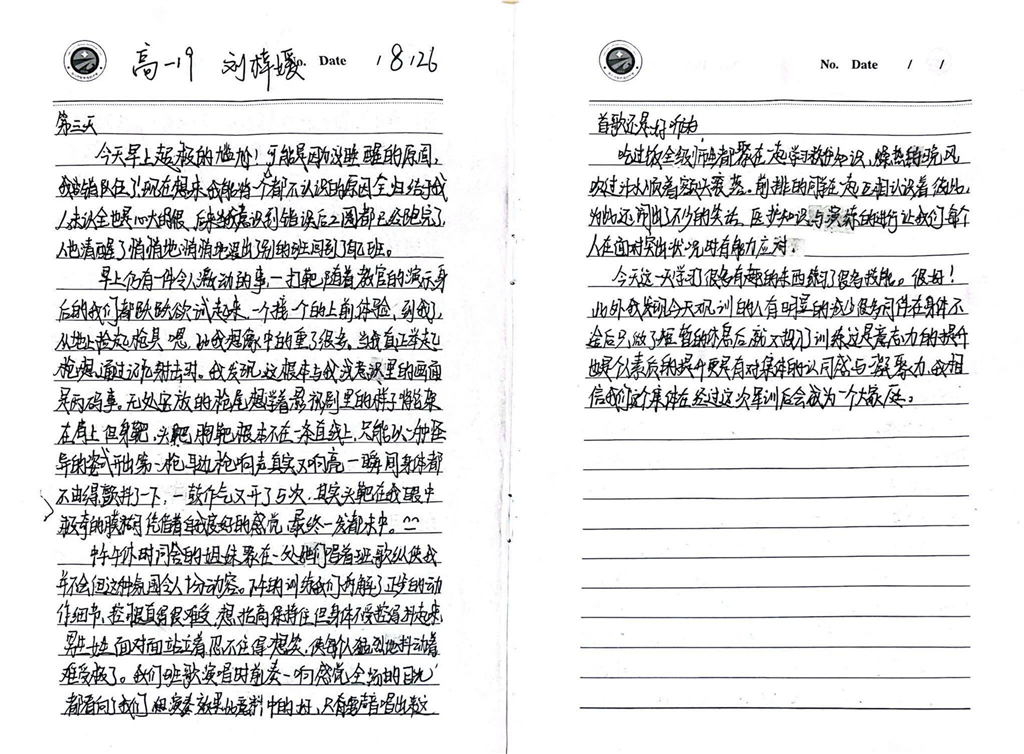 高一19 刘梓媛 No. Date / 8 / 26
第三天
今天早上起极的尴尬！可能是因为没睡醒的原因，
我站错队伍了，现在想来我能将一个都不认识的原因全归结于我
人未认全也是心大的很，后来当我意识到错误后2圈都已经跑完了，
人也清醒了悄悄地悄悄地溜出别的班回到了自己班。
早上仍有件令人激动的事—打靶，随着教官的演示身
后的我们都跃跃欲试起来，一个接一个的上前体验，到我了，
从地上拾起枪具，嗯，比我想象中的重了很多，当我真正举起
枪想通过记忆射击时。我发现，这根本与我意识里的画面
是两码事。无处安放的枪尾想学着影视剧里的样子将它架
在肩上但身靶，头靶，胸靶根本不在一条直线上，只能以一种怪
异的姿式开出第一枪，耳边枪响声真实又响亮一瞬间身体都
不由得颤抖了一下，一鼓作气又开了5次，其实头靶在我眼中
极奇的模糊，凭借着自我良好的感觉，最终一发都未中。^^
中午午休时同宿的姐妹聚在一处她们唱着班歌纵使我
并不会但这种氛围令人十分动容。下午的训练我们拆解了正步的动
作细节，控腿真得很难受，想抬高保持住但身体不受控得抖起来
男生女生面对面站立着忍不住得想笑，使每个人猛烈地抖动着
难受极了。我们班歌演唱时前奏一响感觉全场的目光
都看向了我们但演奏效果比意料中的好，只有高声唱出来这
No. Date / /
首歌还是好听的
吃过饭全级师生都聚在一起学习救护知识，燥热转晚风
吹过汗水顺着额头滚落。前排的同学在一起互相认识着彼此，
为此还闹出了不少的笑话。医护知识与演练的进行让我们每个
人在面对突出状况时有能力应对。
今天这一天学习了很多有趣的东西练习了很多技能。很好！
此外我发现今天机训的人有明显的减少很多同伴在身体不
适后只做了短暂的休息后就又投入了训练这是意志力的提升
也是个人素质的提升更是有对集体的认同感与凝聚力，我相
信我们这个集体在经过这次军训后会成为一个大家庭。